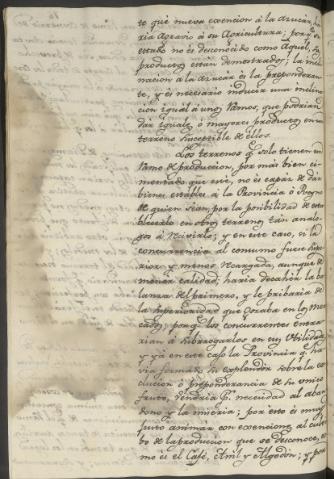 te que nueva exencion à la Azucàr, ha
ria agravio à su Agricultura; porq. su
estado no es desconocido como aquel, su
producto estan demostrados; la incli
nacion à la Azucàr es la preponderan
te, y es necesario inducir una inclina
cion igual à unos Ramos, que podrian
dàr iguales ò mayores productos en un
terreno susceptible de ellos.
Los terrenos q. solo tienen un
ramo de produccion, por màs bien ci
mentado que estè, no es capàz de dàr
bienes estables à la Provincia ò Reyno
de quien sean, por la posibilidad de esta
blecerlo en otros terrenos tàn analo
gos à recivirlo; y en este caso, si la
concurrencia al consumo fuese supe
rior y menos recargada, aunque de
menor calidad, haria decahèr la ba
lanza del primero, y le pribaria de
la superioridad que gozaba en los mer
cados, porq. los concurrentes entra
rian à subrogarlos en sus Utilidades
y yà en este caso la Provincia q. ha
via formado su explendor sobre la ex
clucion ò preponderancia de su unico
fruto, vendria p. necesidad al aban
dono y la miseria; por esto es muy
justo animàr con exenciones al culti
bo de la produccion que se desconoce, co
mo es el Cafè, Añil y Algodòn; y por